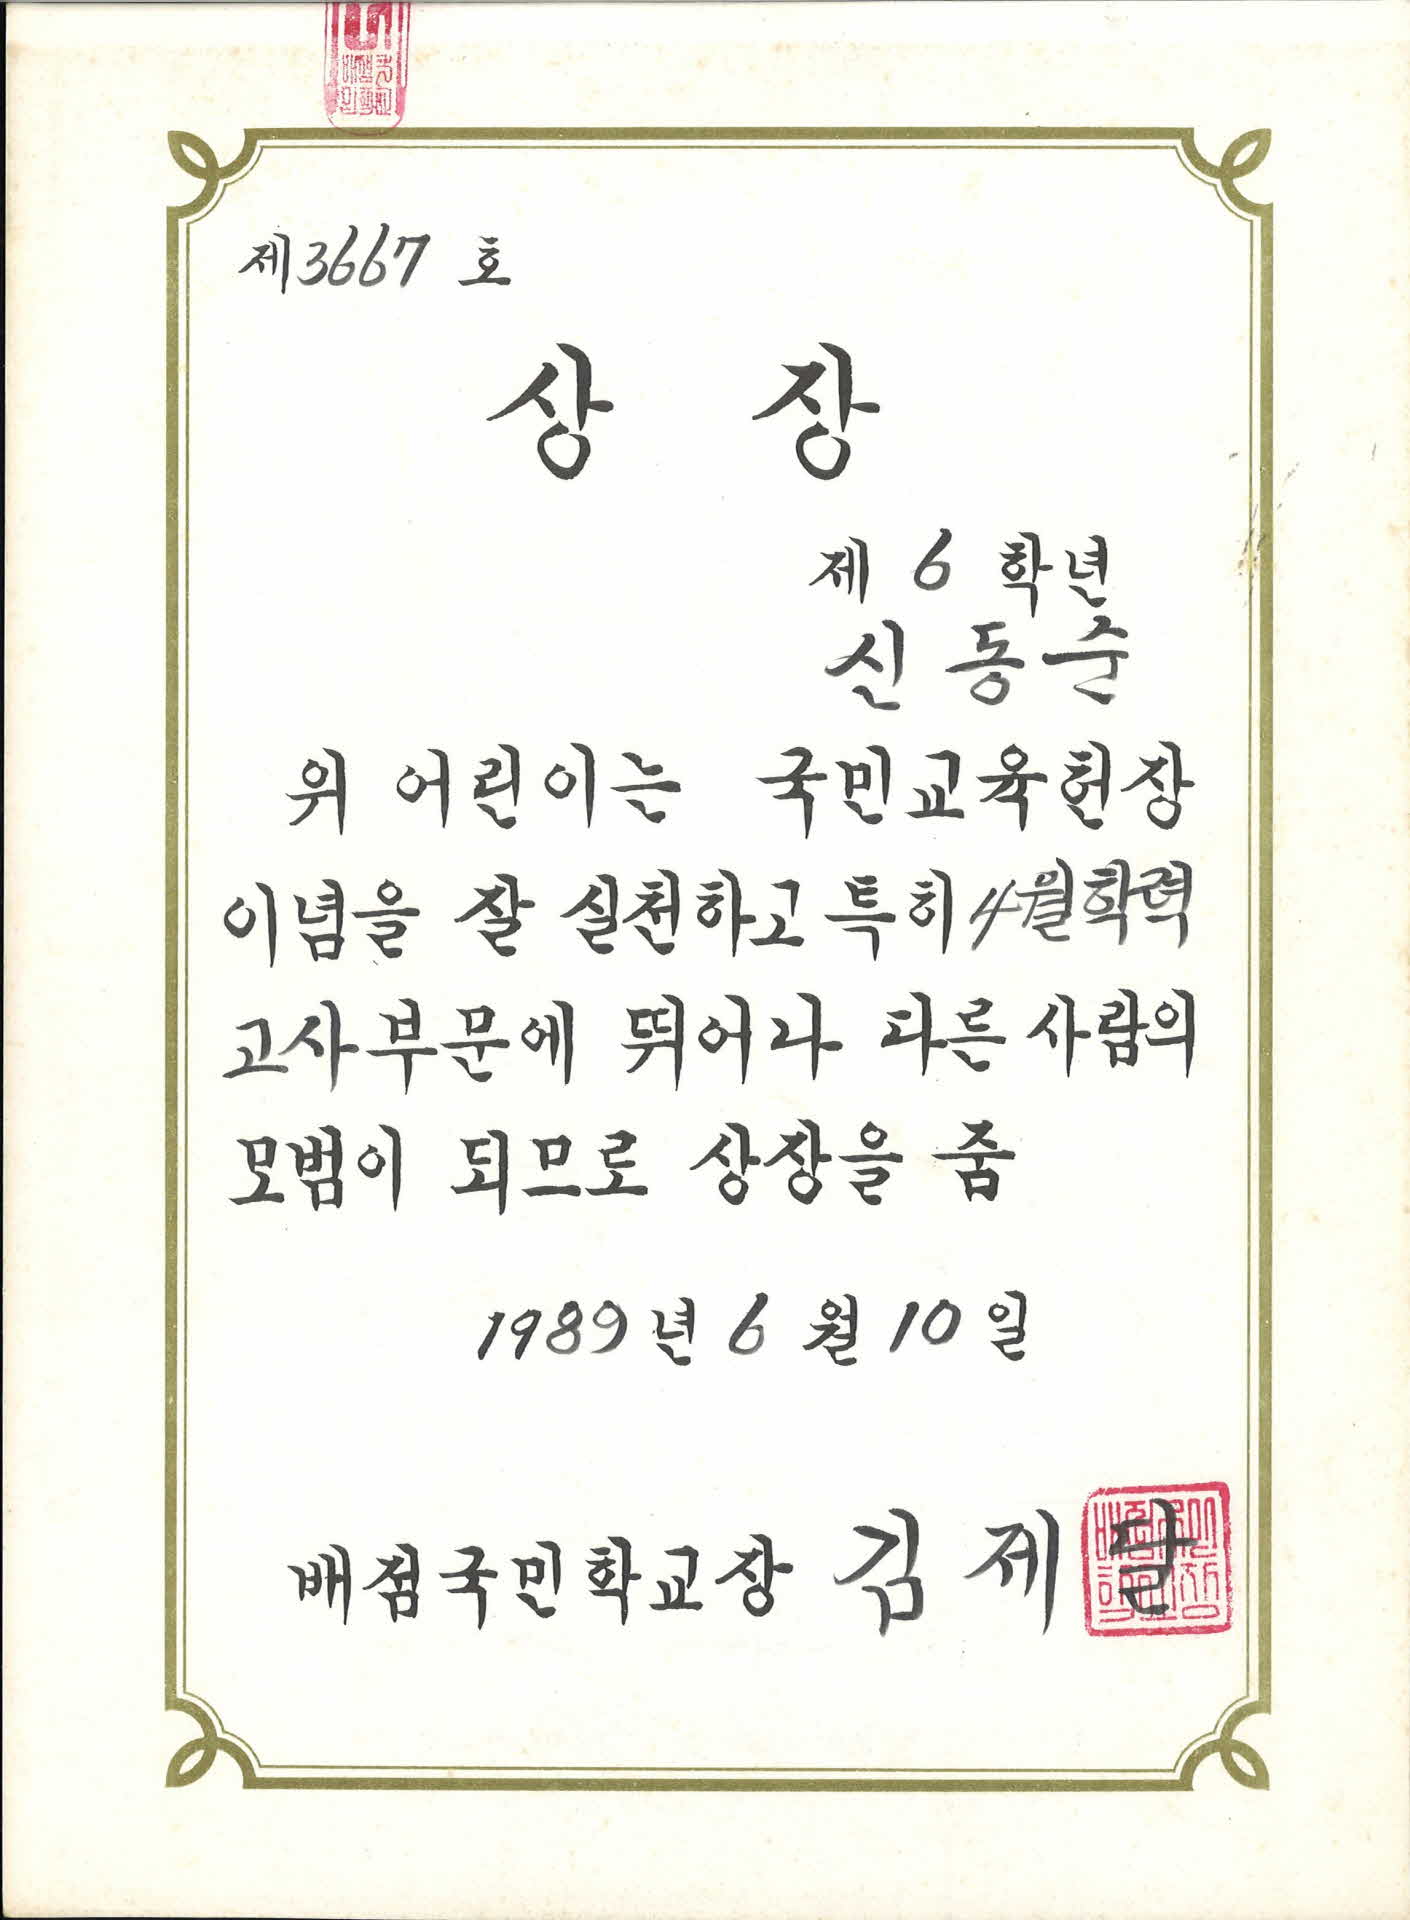 제3667 호
상 장
제 6 학년
신동순
위 어린이는 국민교육헌장
이념을 잘 실천하고 특히 4월학력
고사부문에 뛰어나 다른 사람의
모범이 되므로 상장을 줌
1989년 6 월 10 일
배점국민학교장 김 제 달